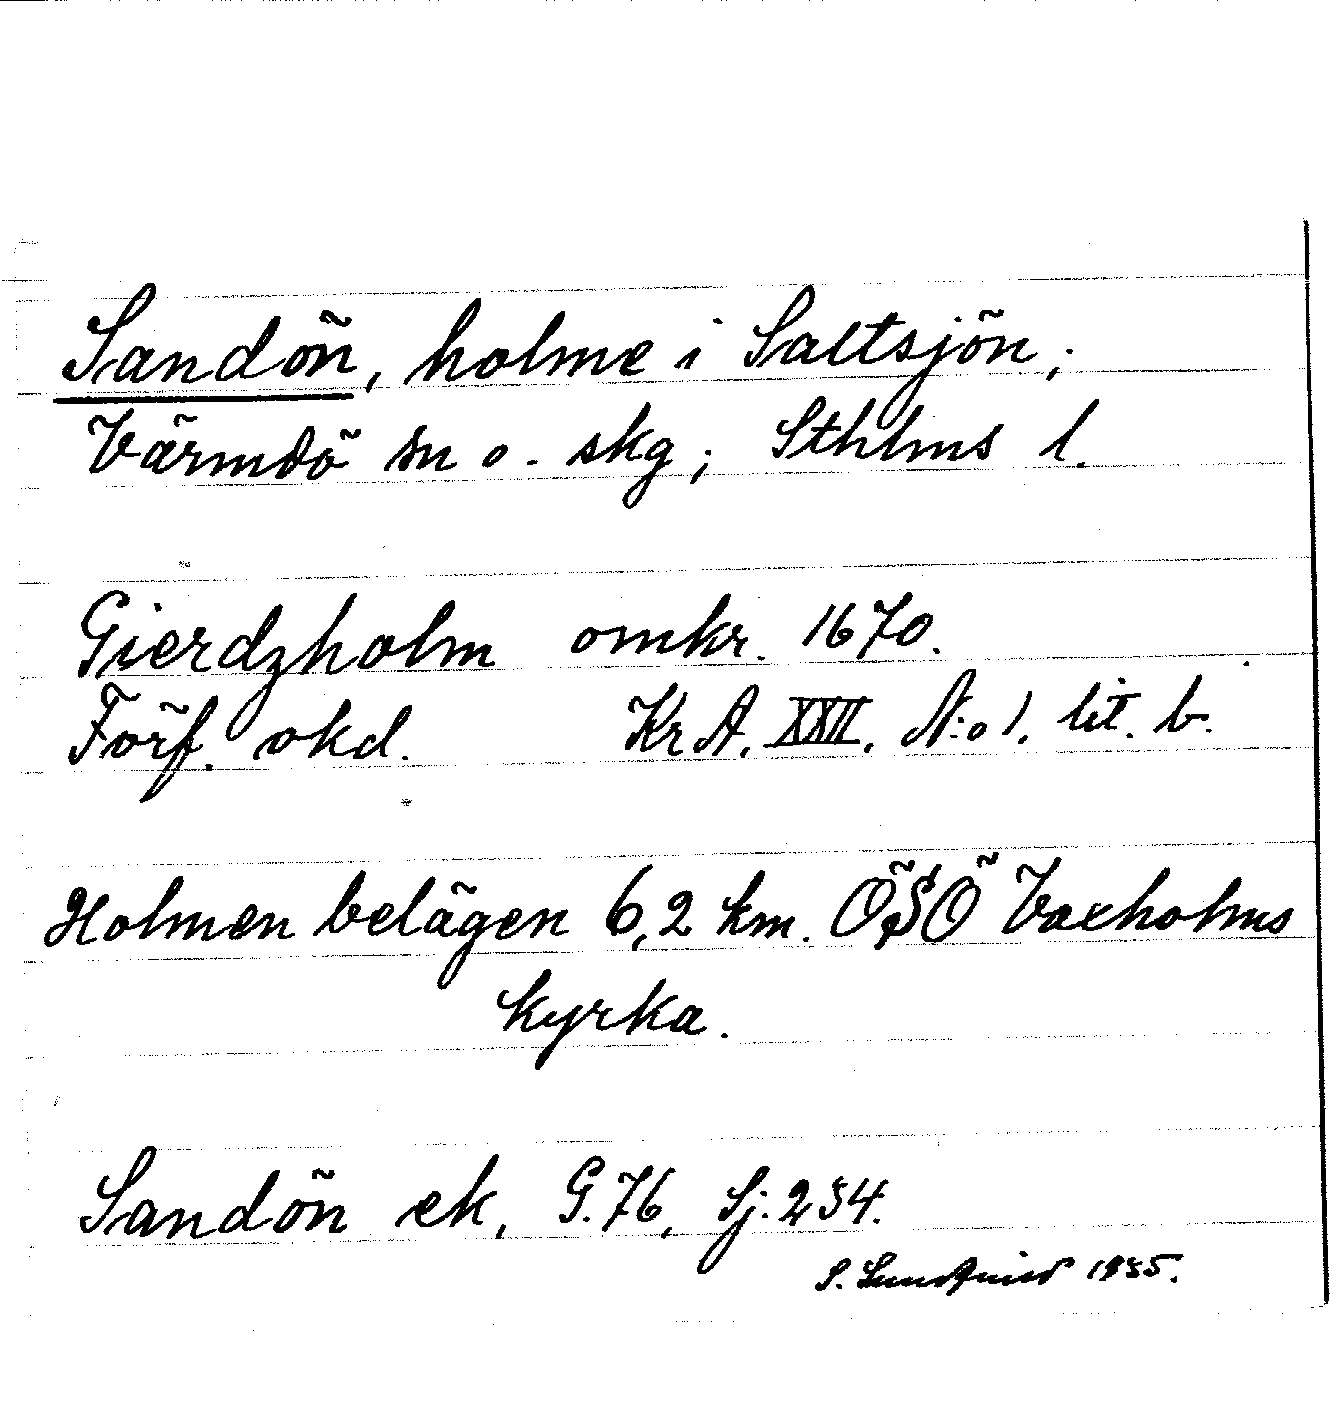 Sandön, holme i Saltsjön;
Värmdö sn o. skg; Sthlms l.
Gierdzholm omkr. 1670.
Förf. okd. KrA. XXII. N:o 1. lit. b.
Holmen belägen 6,2 km. ÖSÖ Vaxholms
kyrka.
Sandön ek. G.76, Sj. 234.
S. Lundqvist 1935.